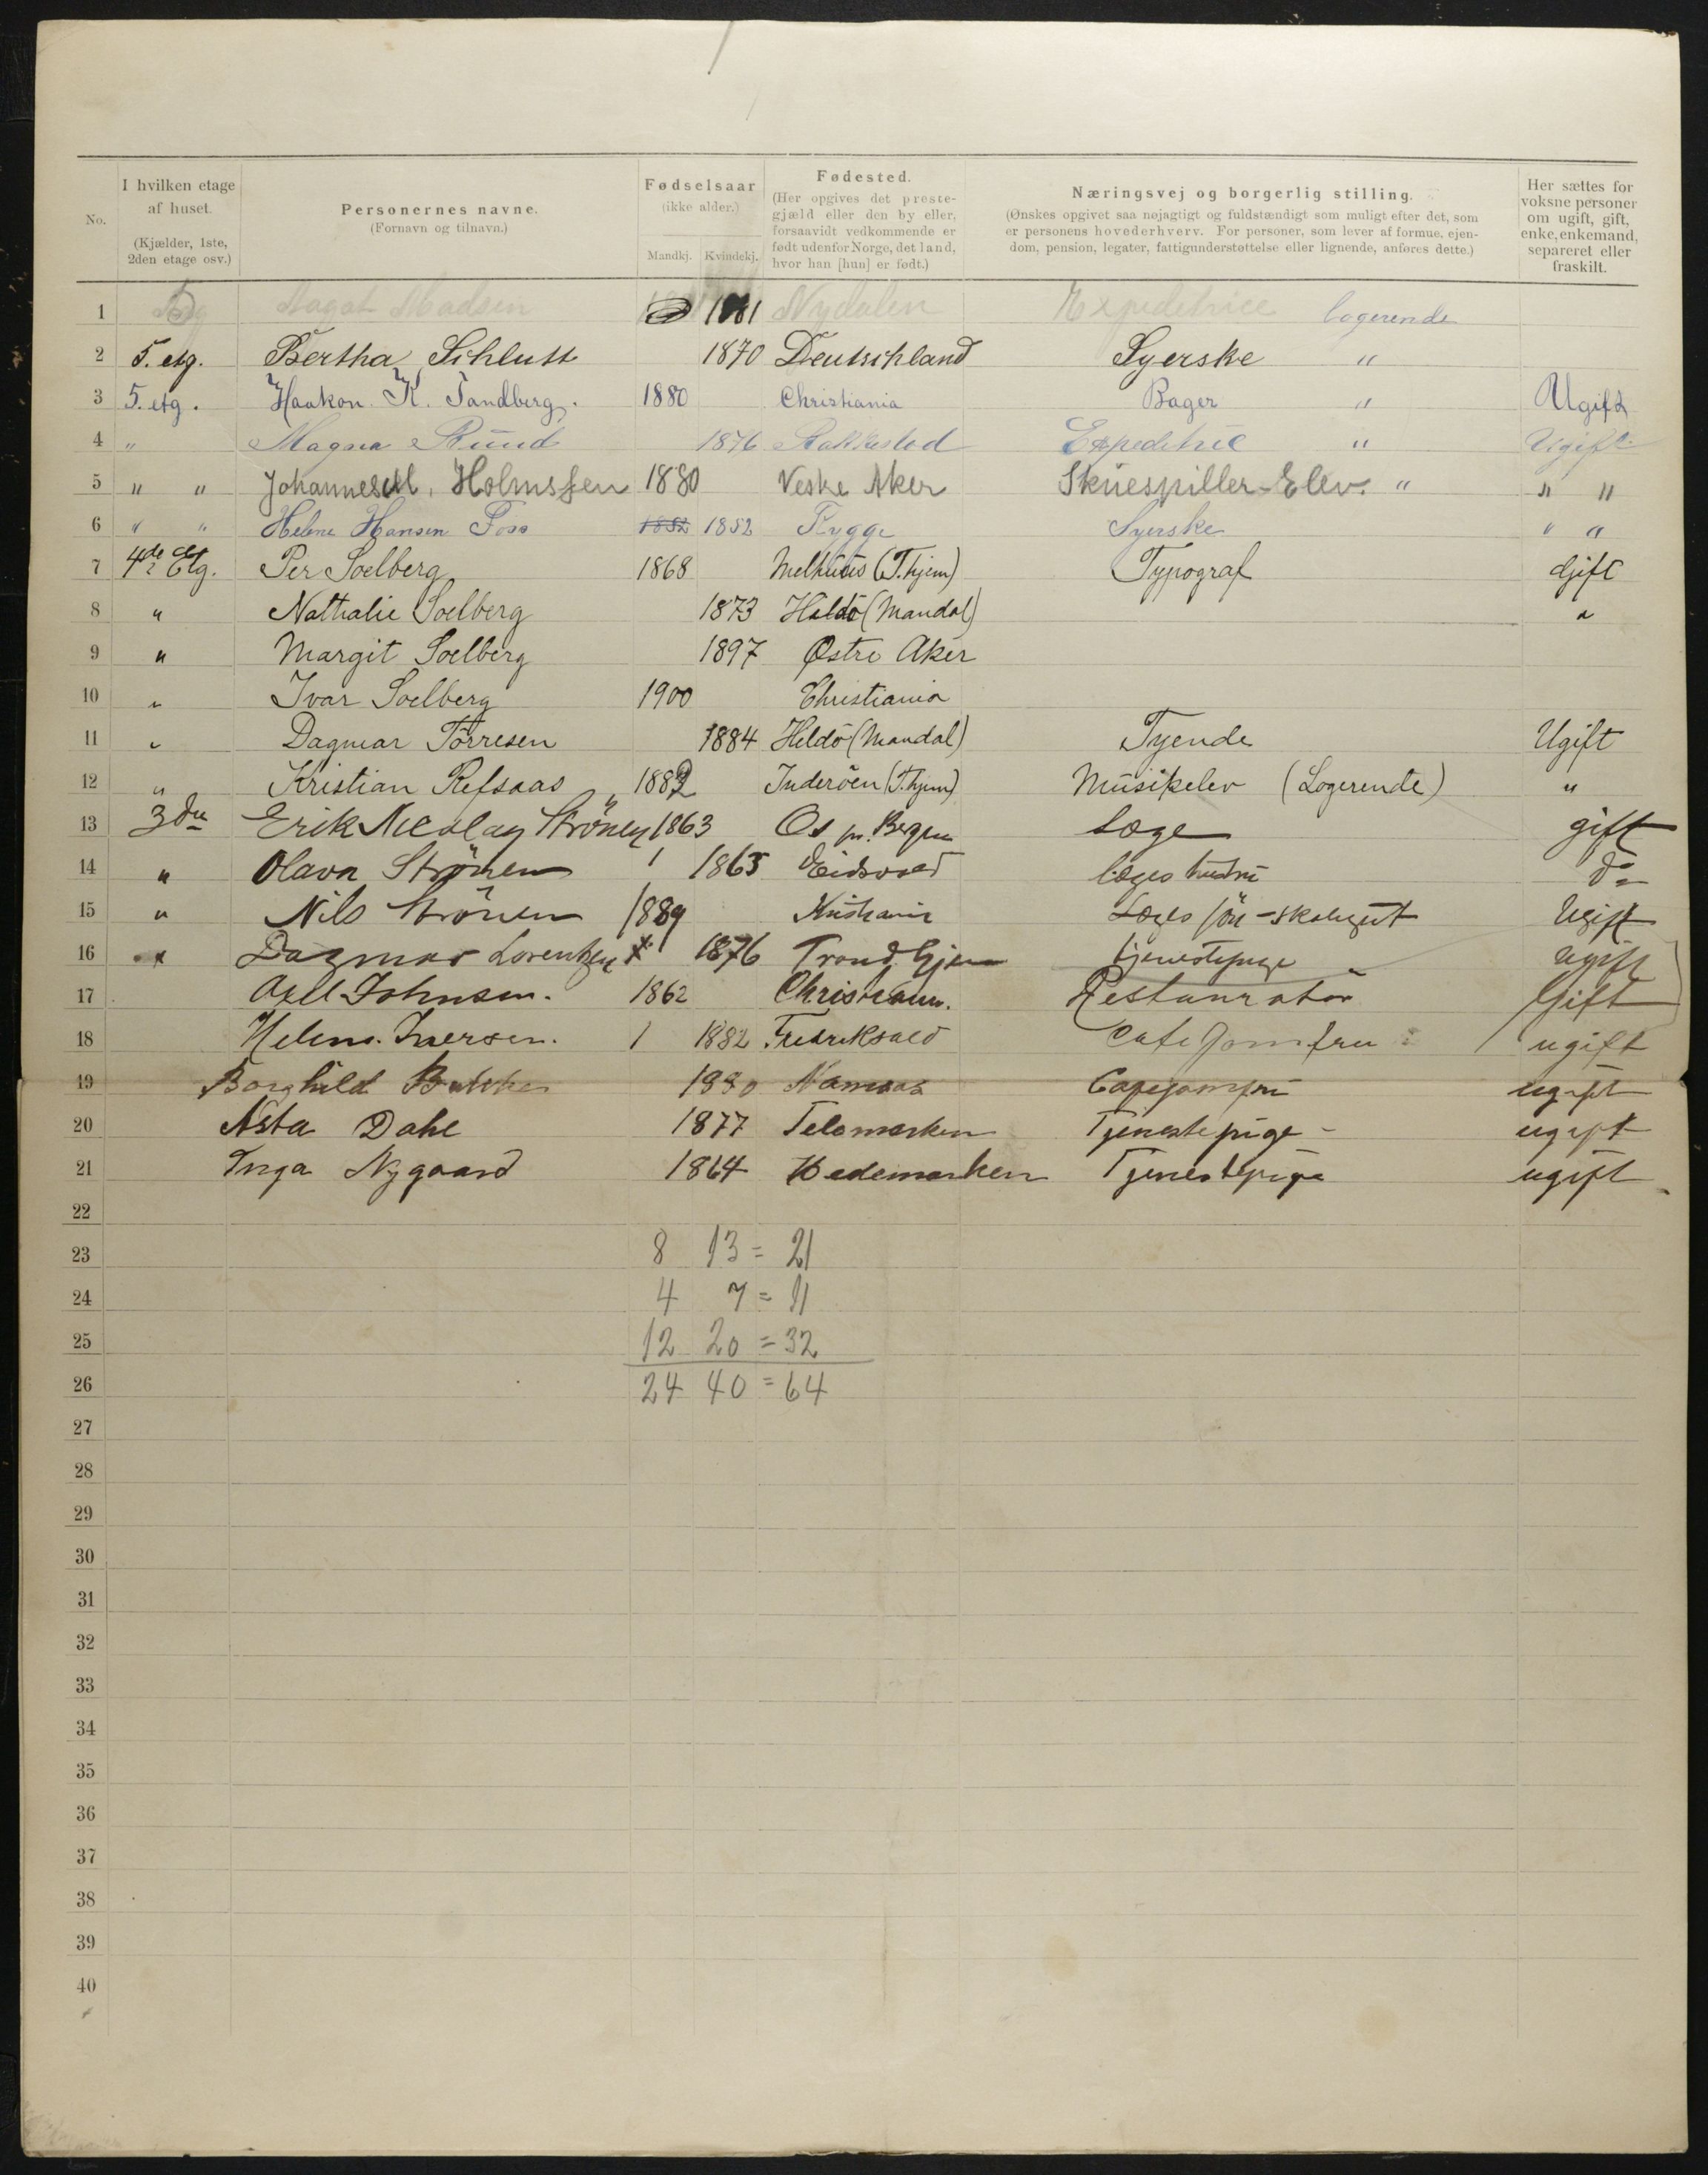 No.
I hvilken etage af huset.
(Kjælder, 1ste, 2den etage osv.)
Personernes navne.
(Fornavn og tilnavn.)
Fødselsaar
(ikke alder.)
Mandkj. Kvindekj.
Fødested.
(Her opgives det prestegjæld eller den by eller, forsaavidt vedkommende er født udenfor Norge, det land, hvor han [hun] er født.)
Næringsvej og borgerlig stilling.
(Ønskes opgivet saa nøjagtigt og fuldstændigt som muligt efter det, som er personens hovederhverv. For personer, som lever af formue, ejendom, pension, legater, fattigunderstøttelse eller lignende, anføres dette.)
Her sættes for voksne personer om ugift, gift, enke, enkemand, separeret eller fraskilt.
1 Aagot Madsen 1881 Nydalen Expeditrice logerende
2 5. etg. Bertha Schlutt 1870 Deutschland Syerske "
3 5. etg. Haakon K. Sandberg. 1880 Christiania Bager " Ugift
4 " Magna Ruud 1876 Expeditric " Ugift
5 " " Johannes M. Holmssen 1880 Vestre Aker Skuespiller-Elev. " " "
6 " " Helene Hansen Foss 1852 1852 Rygge Syerske " "
7 4de Etg. Per Soelberg 1868 Melhuus (T.hjem) Typograf Gift
8 " Nathalie Soelberg 1873 (Mandal) "
9 " Margit Soelberg 1897 Østre Aker
10 " Ivar Soelberg 1900 Christiania
11 " Dagmar Torresen 1884 (Mandal) Tyende Ugift
12 " Kristian Refsaas 1882 Inderöen (T.hjem) Musikelev (Logerende) "
13 3die Erik Nicolay Strönen 1863 Os pr. Bergen Læge gift
14 " Olava Strönen 1 1865 Eidsvold Læges hustru do
15 " Nils Strönen 1889 Kristiania Læges sön - skolegut Ugift
16 " Dagmar Lorentzen 1876 Trondhjem tjenestepige ugift
17 Axel Johnsen. 1862 Christiania. Restauratör Gift
18 Helene Iversen. 1 1882 Fredriksald Cafe Jomfru ugift
19 Borghild 1880 Namsos Cafejomfru ugift
20 Asta Dahl 1877 Telemarken Tjenestepige - ugift
21 Inga Nygaard 1864 Hedemarken Tjenestepige ugift
22
23 8 13 = 21
24 4 7 = 11
25 12 20 = 32
26 24 40 = 64
27
28
29
30
31
32
33
34
35
36
37
38
39
40